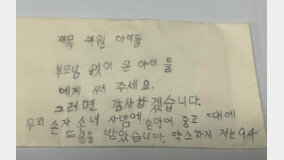 제목 구월 아이들
부모님 없이 큰 아이들
에게 써 주세요.
그러면 감사하겠습니다.
우리 손자 소녀 사남에 손막어 놓고 때에
도움을 받았습니다. 약소하지 저는 94